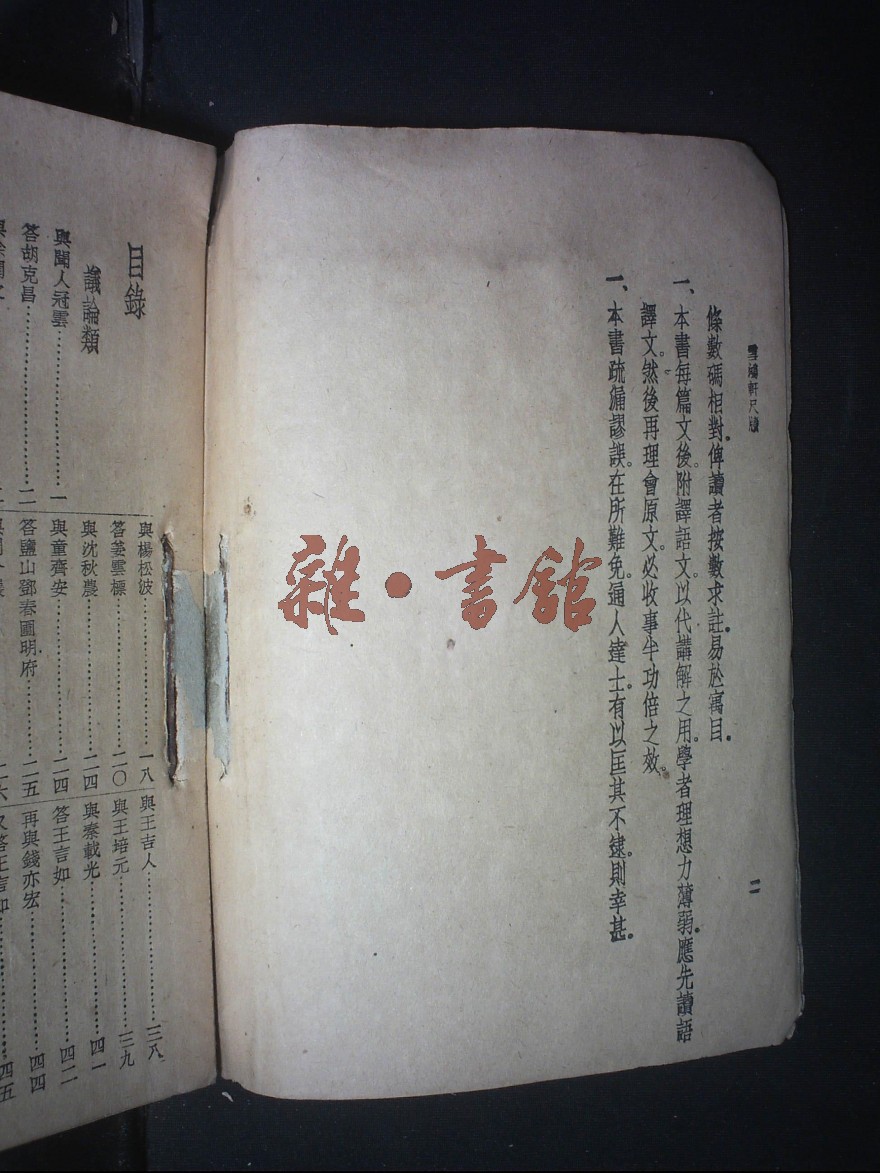 雪鴻軒尺牘
二
條數碼相對。俾讀者按數求註。易於寓目。
一、本書每篇文後。附譯語文。以代講解之用。學者理想力薄弱。應先讀語
譯文。然後再理會原文。必收事半功倍之效。
一、本書疏漏謬誤。在所難免。通人達士。有以匡其不逮。則幸甚。
雜·書館
目錄
議論類
與聞人冠雲……一
答胡克昌……二
與楊松波……一八
答姜雲標……二〇
與沈秋農……二四
與童齊安……二四
答鹽山鄧春圃明府……二五
二六
與王吉人……三八
與王培元……三九
與秦載光……四一
答王言如……四二
再與錢亦宏……四四
又答王言如……四五